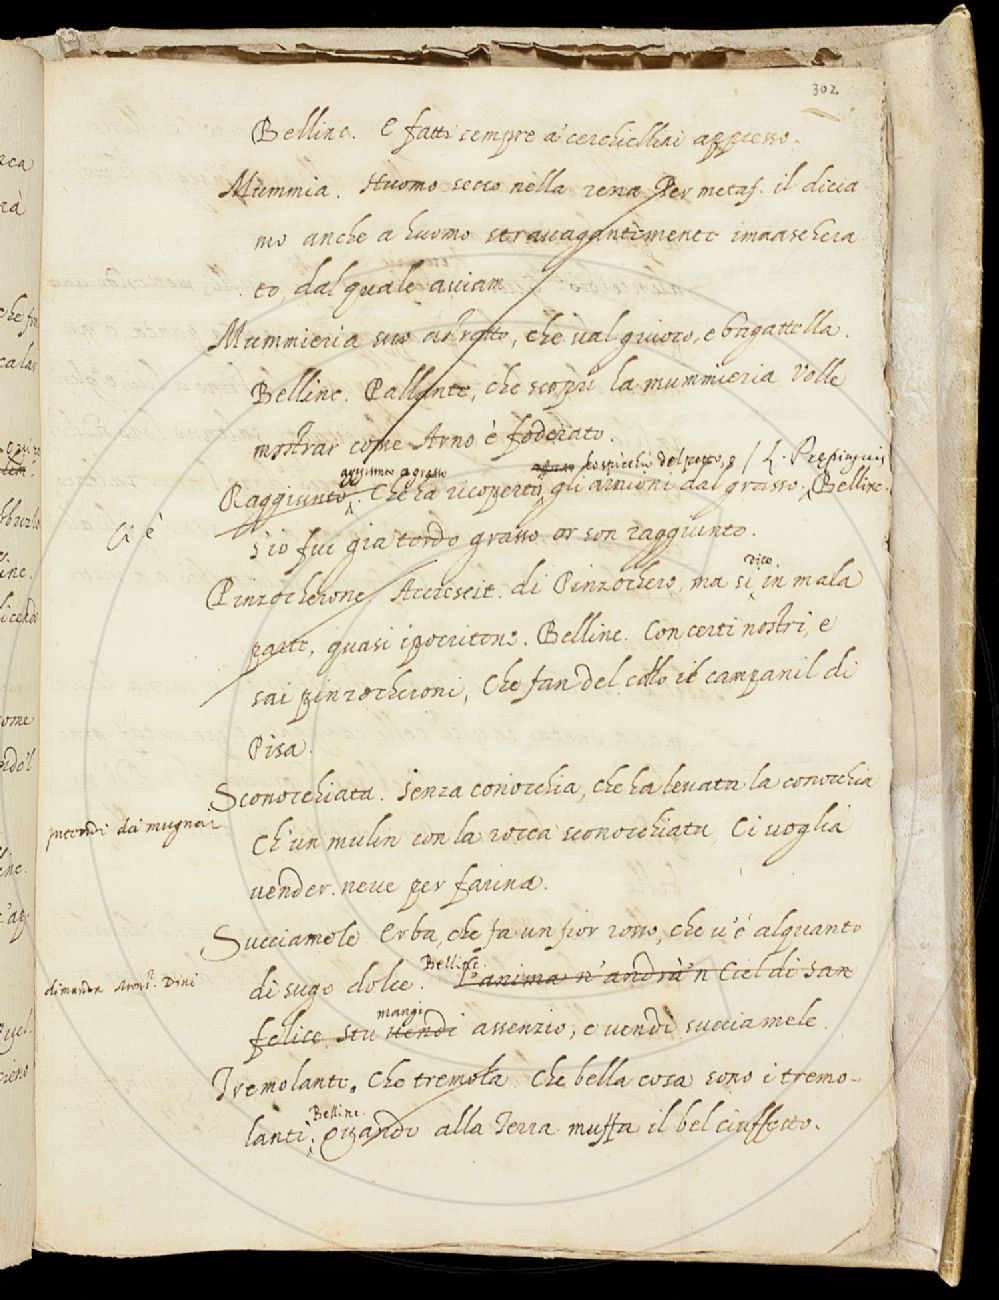 302.
Bellinc. E fatti sempre a' cerchiellini appresso.
Mummia. Huomo secco nella rena Per metaf. il dicia
mo anche a huomo stravagantemente immaschera
to, dal quale aviam
Mummieria suo astratto, che val giuoco, e bagattella.
Bellinc. Pallante, che scoprì la mummieria Volle
mostrar come Arno è foderato.
aggiunto a grasso
Raggiunto. Che ha ricoperti gli arnioni dal grasso. Bellinc.
Ci è
S'io fui già tordo grasso or son raggiunto.
dico
Pinzocherone Accrescit. di Pinzochero, ma si in mala
parte, quasi ipocritone. Bellinc. Con certi nostri, e
sai pinzocheroni, Che fan del collo il campanil di
Pisa.
Sconocchiata. Senza conocchia, che ha levata la conocchia
intendi dei mugnai
Ch'un mulin con la rocca sconocchiata, Ci voglia
vender neve per farina.
Succiamele Erba, che fa un fior rosso, che v'è alquanto
Bellinc.
di sugo dolce. L'anima n'andrà 'n Ciel di San
dimanda Dini
mangi
felice Stu vendi assenzio, e vendi succiamele.
Tremolante. Che tremola Che bella cosa sono i tremo-
Bellinc.
lanti, Quando alla Terra muffa il bel ciuffetto.